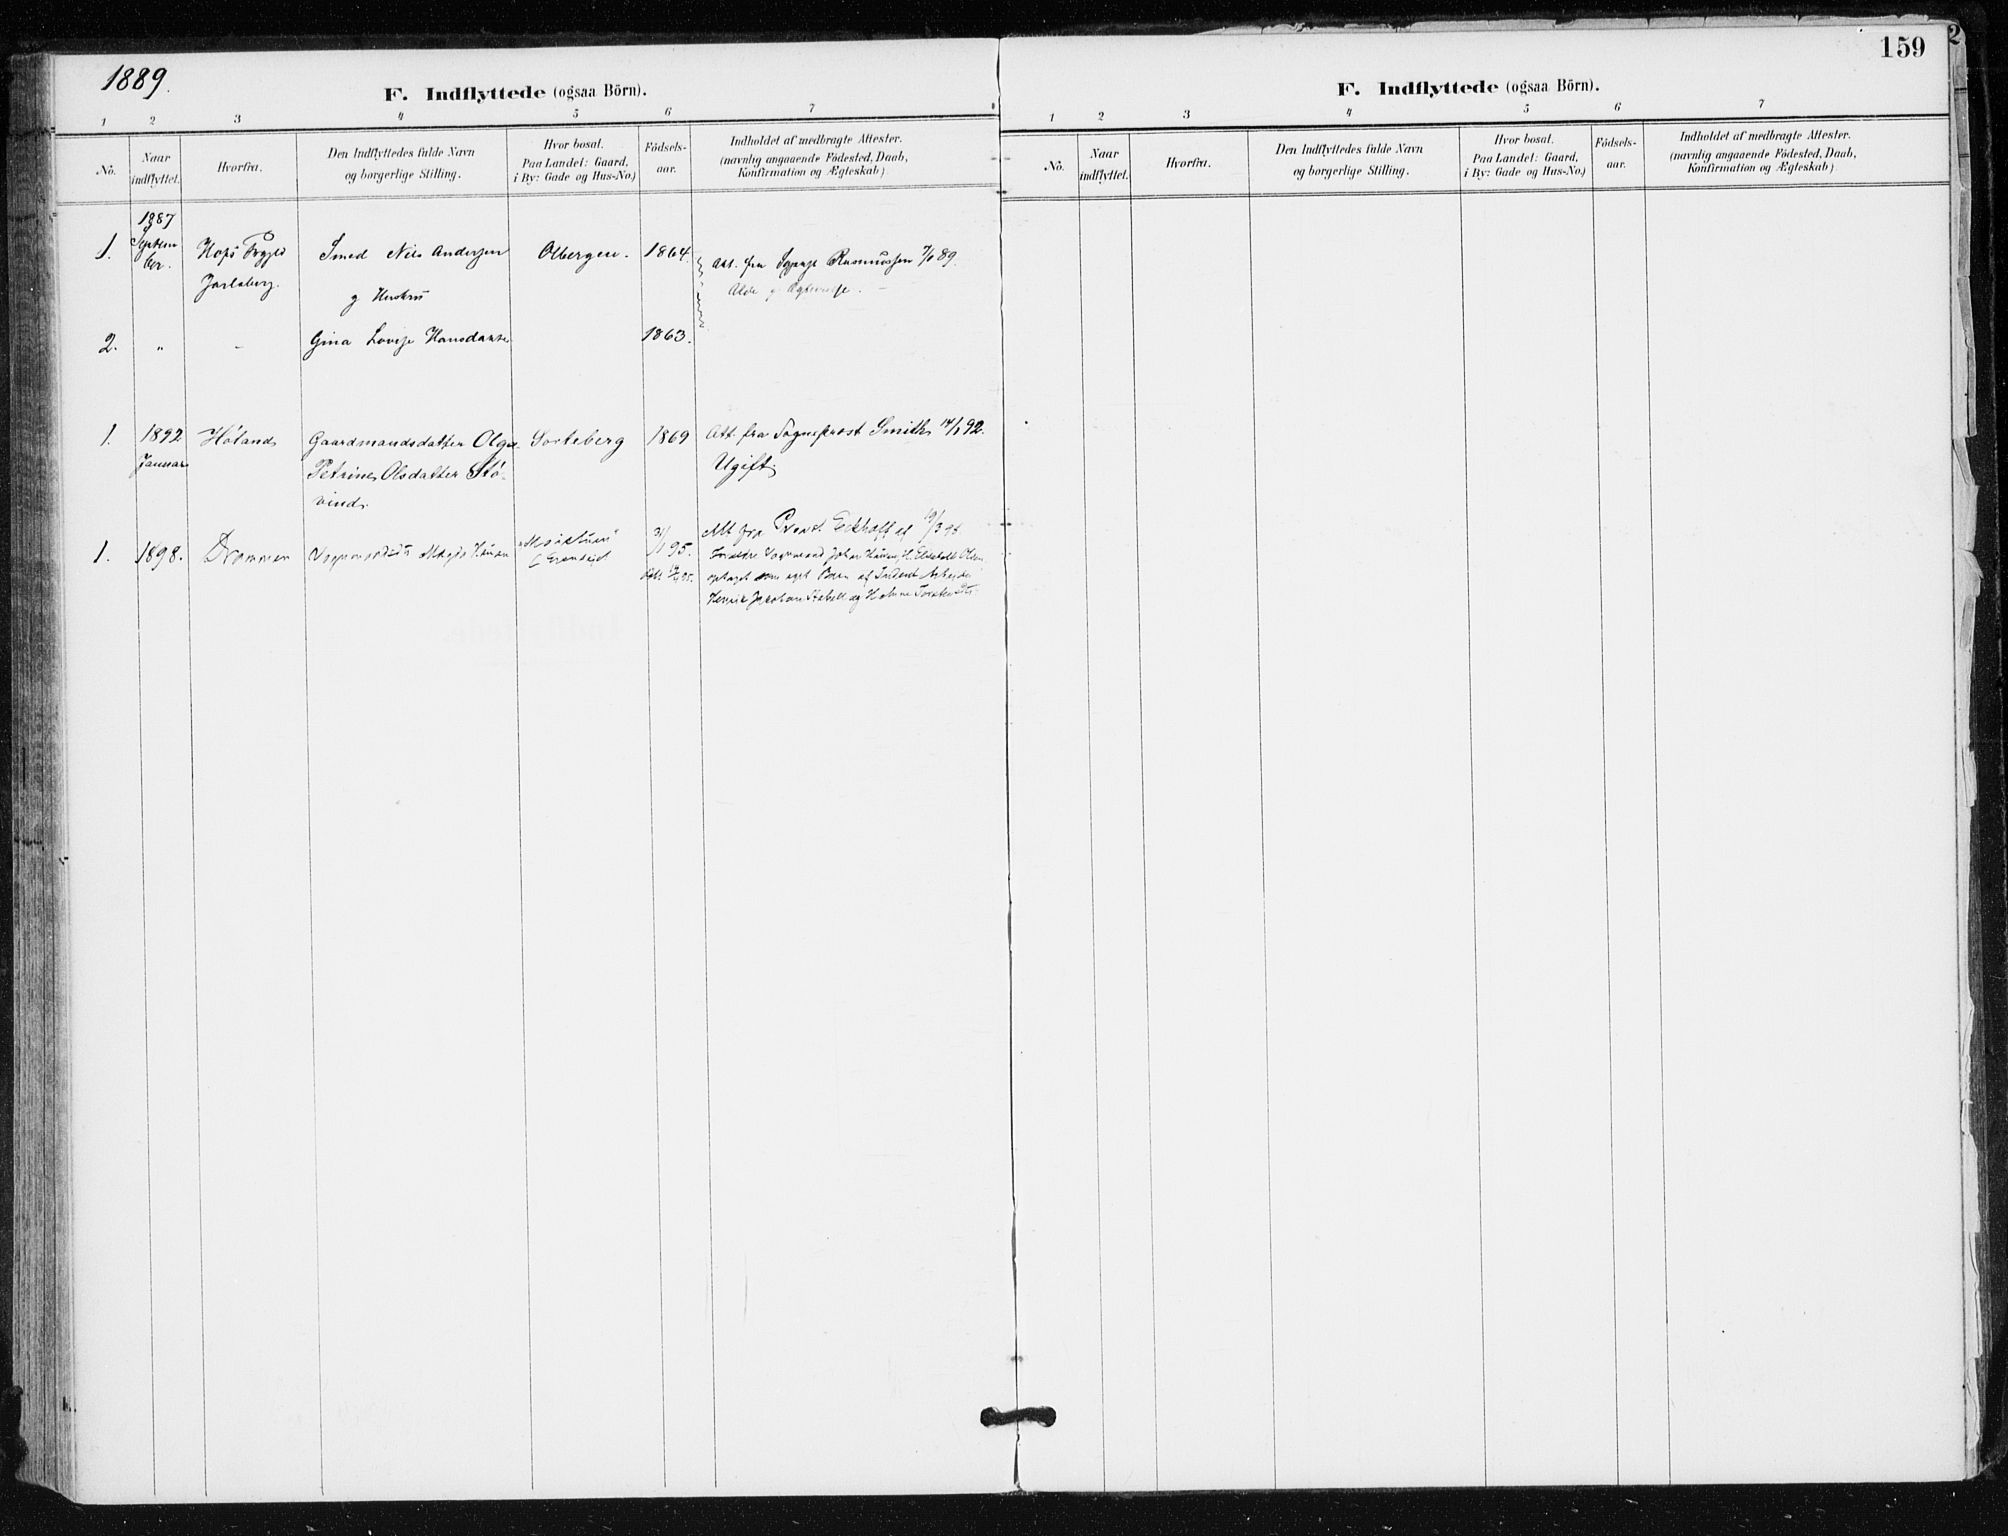 1889.
F. Indflyttede (ogsaa Börn).
1 2 3 4 5 6 7
No.
Naar indflyttet.
Hvorfra.
Den Indflyttedes fulde Navn og borgerlige Stilling.
Hvor bosat. Paa Landet: Gaard, i By: Gade og Hus-No.)
Födsels-aar.
Indholdet af medbragte Attester. (navnlig angaaende Födested, Daab, Konfirmation og Ægteskab)
1887
1. Septem Hofs Smed Nils Andersen Olbergen. 1864. Att. fra Rasmussen 7/6 89.
ber. Jarlsberg.
g Hustru
2. „ - Gina Lovise Hansdatter 1863.
1. 1892 Höland Gaardmandsdatter Olga Sorteberg 1869 Att. fra Sogneprest Smith 14/1 92.
Januar Petrine Olsdatter Stö- Ugift
vind.
1. 1898. Drammen Magda Hansen 95. Att fra Provst Eckhoff af 19/3 98.
Forældre Johan Hansen, H. Olsen
optaget som eget Barn af Arbeider
Henrik Jacobsen og
159
F. Indflyttede (ogsaa Börn).
1 2 3 4 5 6 7
No.
Naar indflyttet.
Hvorfra.
Den Indflyttedes fulde Navn og borgerlige Stilling.
Hvor bosat. Paa Landet: Gaard, i By: Gade og Hus-No.)
Födsels-aar.
Indholdet af medbragte Attester. (navnlig angaaende Födested, Daab, Konfirmation og Ægteskab)
2